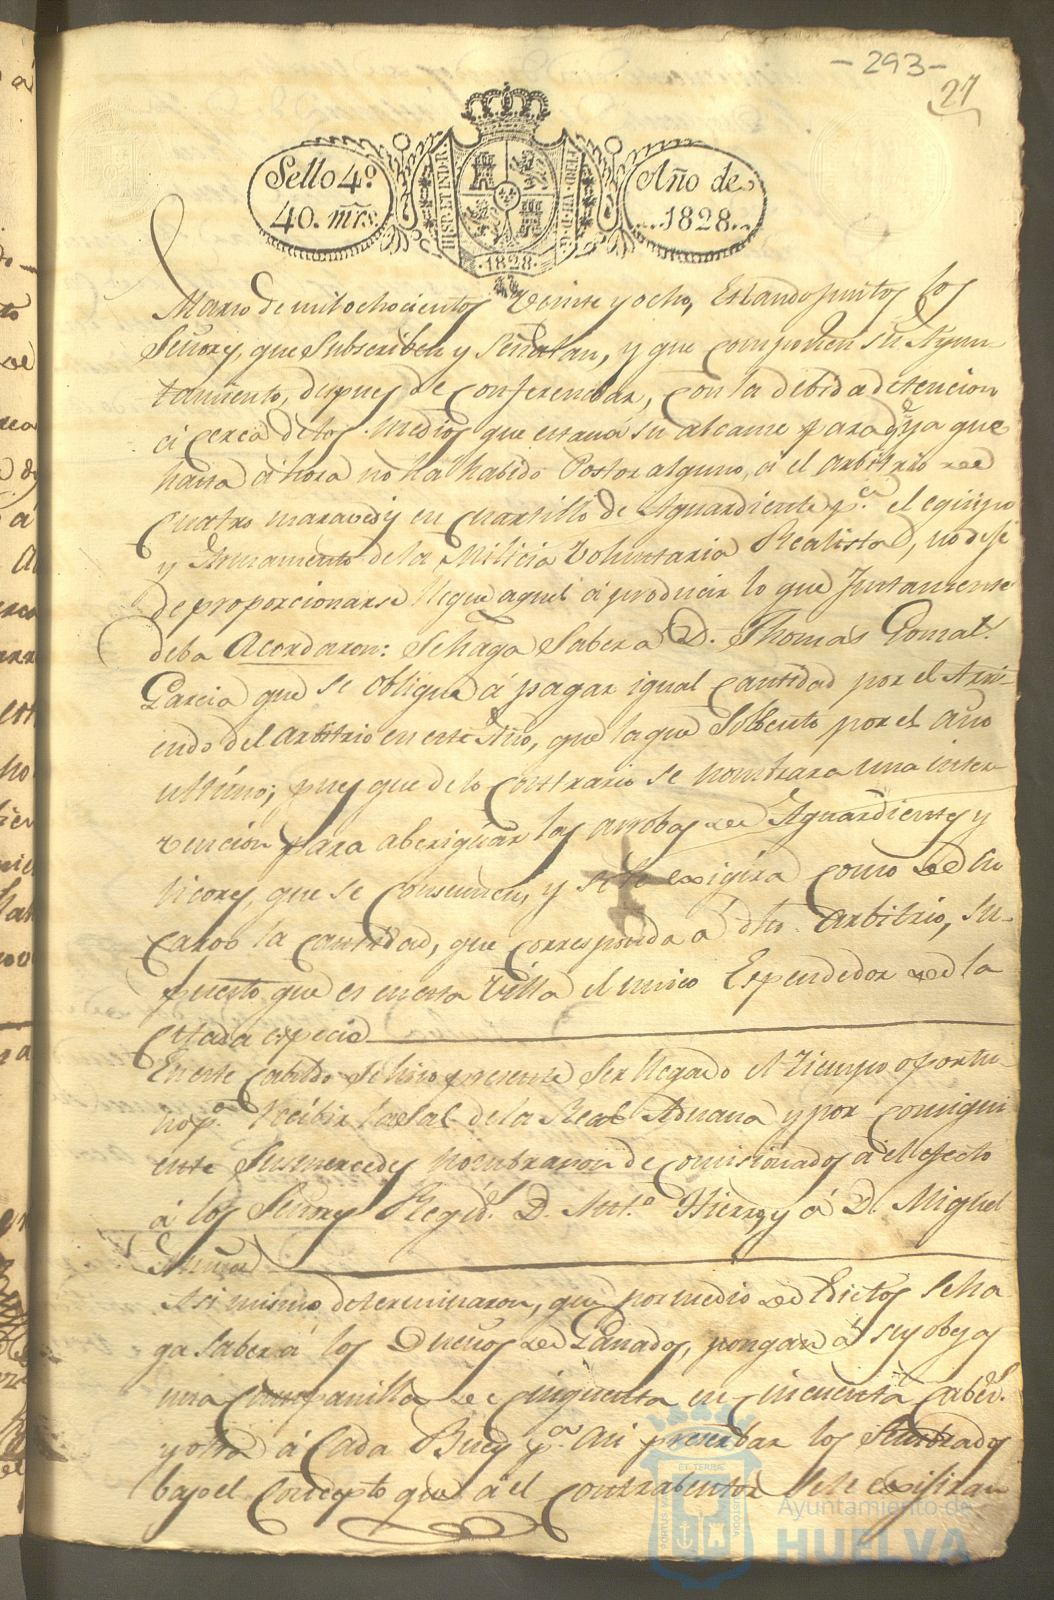 -293-
27
Sello 4.º
40. mrs.
HISP. ET IND. R.
FERD. VII. D. G.
1828
Año de
1828
Marzo de mil ochocientos veinte y ocho, Estando juntos los
Señores, que Subscriben y Señalan, y que componen su Ayun-
tamiento, despues de conferenciar, con la debida detencion
á cerca de los medios que estan á su alcance para q.e ya que
hasta á hora no ha habido Postor alguno, á el arbitrio de
Cuatro maravedis en Cuartillo de Aguardiente p.a el equipo
y Armamento de la Milicia Voluntaria Realista, no deje
de proporcionarse llegue aquel á producir lo que Justamente
deba Acordaron: Se haga Saber a D. Thomas Gonzal.z
Garcia que se obligue á pagar igual cantidad por el Arri-
endo del arbitrio en este Año, que la que Solbento por el año
ultimo; pues que de lo Contrario se nombrara una inter-
vencion para aberiguar las arrobas de Aguardientes y
licores, que se Consumen, y se le exigira como de su
cargo la cantidad, que corresponda á dho. Arbitrio, Su-
puesto que es en esta Villa el unico Espendedor de la
Citada especie
En este Cabildo se hizo presente Ser llegado el Tiempo oportu-
no p.a recibir la Sal de la Real Aduana y por consigui-
ente Sus mercedes nombraron de comisionados á el efecto
á los Señores Regid.s D. Ant.o Hierro y á D. Miguel
Asi mismo determinaron, que por medio de Edictos Se ha-
ga Saber á los Dueños de Ganados, pongan á sus obejas
una Campanilla de cinquenta en cincuenta Cabez.s
y otra á Cada Buey p.a Asi preserbar los Sembrados
bajo el Concepto que á el contrabentor Se le exijiran
PORTUS MARIS ET TERRÆ CUSTODIA
Ayuntamiento de
HUELVA